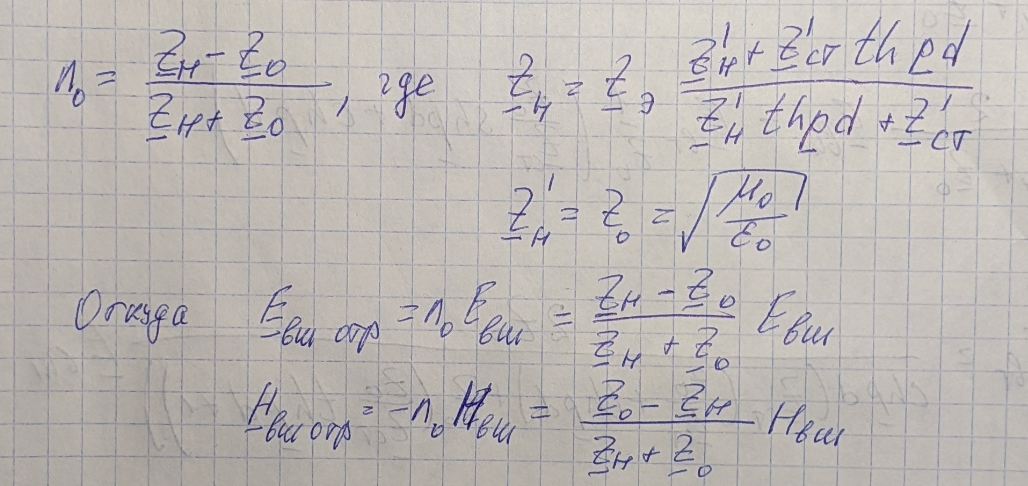 n₀ = (Z̲н − Z̲₀)/(Z̲н + Z̲₀), где Z̲н = Z̲э (Z̲'н + Z̲'ст th p̲d)/(Z̲'н th p̲d + Z̲'ст)
Z̲'н = Z₀ = √(μ₀/ε₀)
Откуда E̲вш отр = n₀ Eвш = (Z̲н − Z̲₀)/(Z̲н + Z̲₀) Eвш
H̲вш отр = −n₀ Hвш = (Z̲₀ − Z̲н)/(Z̲н + Z̲₀) Hвш